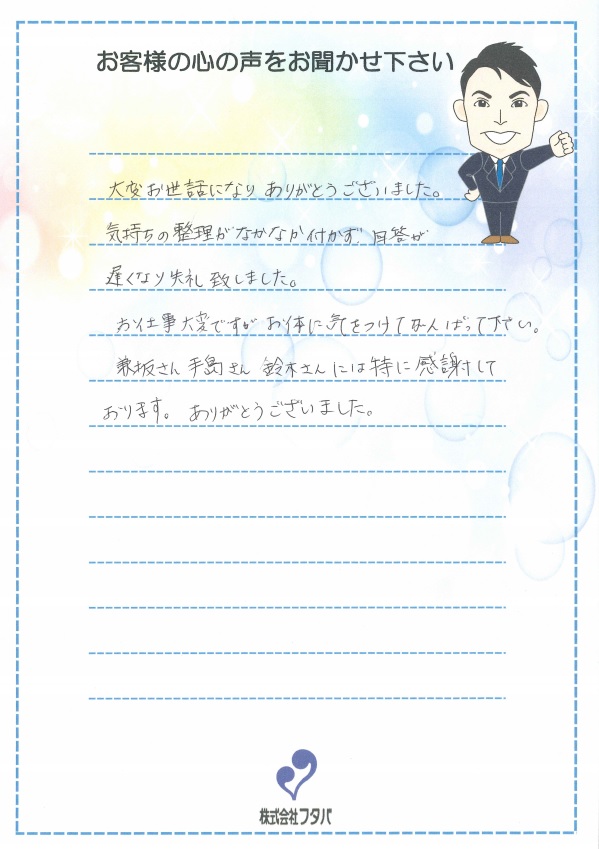 お客様の心の声をお聞かせ下さい
大変お世話になり ありがとうございました。
気持ちの整理がなかなか付かず、回答が
遅くなり失礼致しました。
お仕事大変ですが お体に気をつけてがんばって下さい。
兼坂さん 手島さん 鈴木さんには特に感謝して
おります。 ありがとうございました。
株式会社フタバ